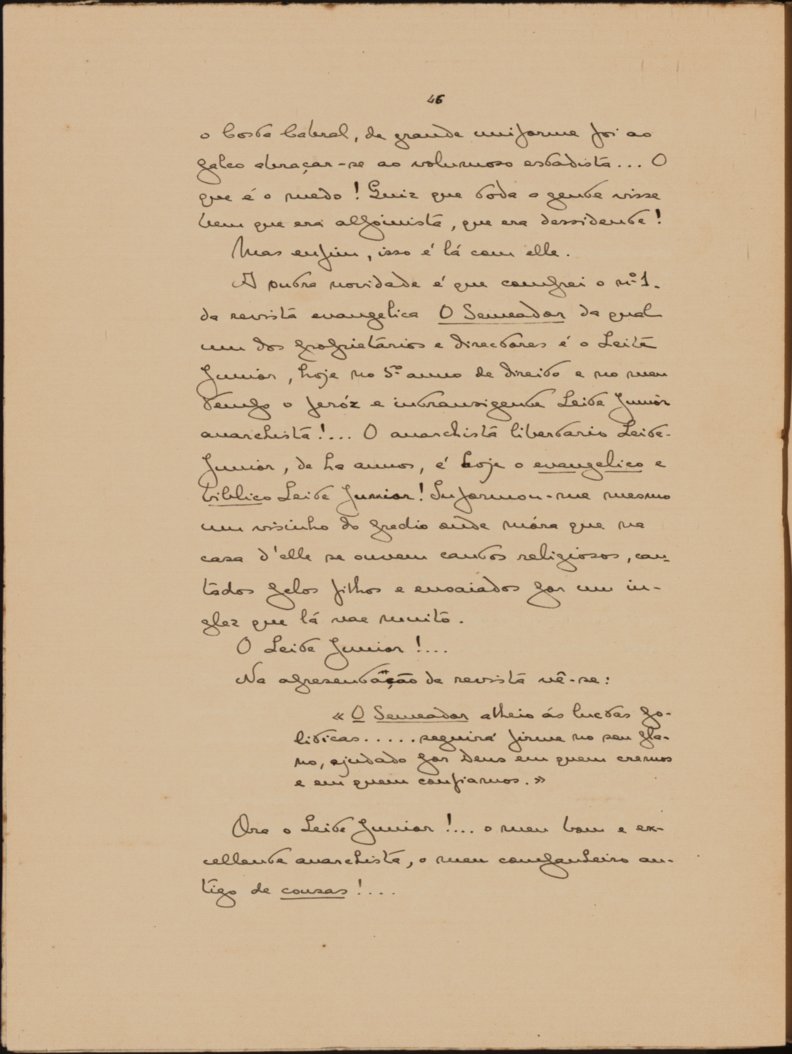 46
o Costa Cabral, de grande uniforme foi ao
palco abraçar-se ao volumoso estadista... O
que é o medo! Quiz que toda a gente visse
bem que era alpoimista, que era dessidente!
Mas enfim, isso é lá com elle.
A outra novidade é que comprei o nº 1.
da revista evangelica O Semeador da qual
um dos proprietarios e directores é o Leite
Junior, hoje no 5º anno de direito e no meu
tempo o feróz e intransigente Leite Junior
anarchista!... O anarchista libertario Leite
Junior, de ha annos, é hoje o evangelico e
biblico Leite Junior! Informou-me mesmo
um visinho do predio onde móra que na
casa d'elle se ouvem cantos religiosos, can-
tados pelos filhos e ensaiados por um in-
glez que lá vae muito.
O Leite Junior!...
Na apresentação da revista vê-se:
« O Semeador alheio ás luctas po-
liticas..... seguirá firme no seu pla-
no, ajudado por Deus em quem cremos
e em quem confiamos. »
Ora o Leite Junior!... o meu bom e ex-
cellente anarchista, o meu companheiro an-
tigo de cousas!...